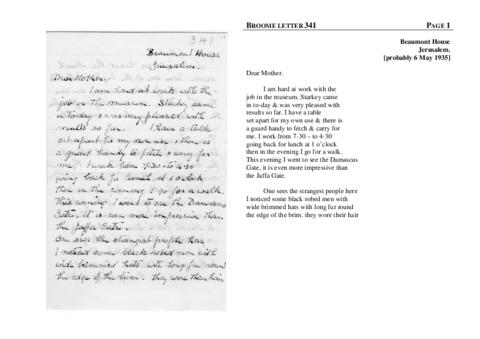 341
Beaumont House
Jerusalem.
Dear Mother,
I am hard at work with the
job in the museum. Starkey came
in to-day & was very pleased with
results so far. I have a table
set apart for my own use & there is
a guard handy to fetch & carry for
me. I work from 7-30 - to 4-30
going back for lunch at 1 o'clock
then in the evening I go for a walk.
This evening I went to see the Damascus
Gate, it is even more impressive than
the Jaffa Gate.
One sees the strangest people here
I noticed some black robed men with
wide brimmed hats with long fur round
the edge of the brim. they wore their hair
BROOME LETTER 341 PAGE 1
Beaumont House
Jerusalem.
[probably 6 May 1935]
Dear Mother.
I am hard at work with the
job in the museum. Starkey came
in to-day & was very pleased with
results so far. I have a table
set apart for my own use & there is
a guard handy to fetch & carry for
me. I work from 7-30 – to 4-30
going back for lunch at 1 o'clock
then in the evening I go for a walk.
This evening I went to see the Damascus
Gate, it is even more impressive than
the Jaffa Gate.
One sees the strangest people here
I noticed some black robed men with
wide brimmed hats with long fur round
the edge of the brim. they wore their hair